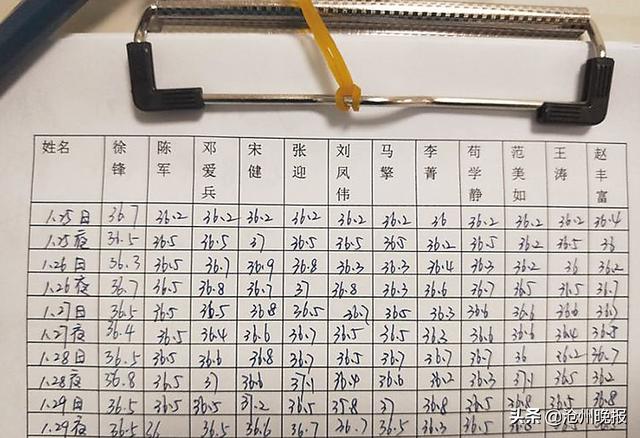 姓名 徐锋 陈军 邓爱兵 宋健 张迎 刘凤伟 马擎 李菁 苟学静 范美如 王涛 赵丰富
1.25日 36.7 36.2 36.2 36.2 36.2 36.2 36.2 36 36.2 36.2 36.2 36.4
1.25夜 36.5 36.5 36.5 37 36.5 36.5 36.5 36.2 36.5 36.2 36.5 36
1.26日 36.3 36.5 36.7 36.9 36.8 36.3 36.3 36.4 36.3 36.2 36 36.2
1.26夜 36.7 36.5 36.8 36.7 37 36.8 36.3 36.6 36.7 36.5 36.5 36.7
1.27日 36.5 36.5 36.5 36.8 36.5 36.7 36.5 36.3 36.6 36.6 36.6 36.7
1.27夜 36.4 36.5 36.4 36.6 36.7 36.5 36.5 36.3 36.6 36.6 36.4 36.8
1.28日 36.5 36.5 36.6 36.8 36.7 36.5 36.7 36.7 36.7 36 36.2 36.7
1.28夜 36.8 36.5 37 36.6 37.1 36.4 36.6 36.2 36.3 37.1 36.5 36.2
1.29日 36.5 36.5 36.5 37.2 36.5 35.8 37 36.8 36.5 36.8 36.5 36.8
1.29夜 36.5 36 36.5 36.6 36.7 36.7 36.5 36.3 36.5
头条 @沧州晚报